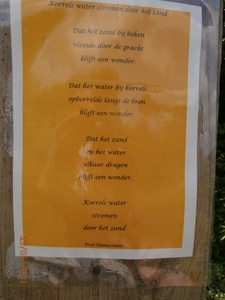 Korrels water stromen door het zand
Dat het zand bij beken
vloeide door de gracht
blijft een wonder.
Dat het water bij korrels
opborrelde langs de bron
blijft een wonder.
Dat het zand
en het water
elkaar dragen
blijft een wonder.
Korrels water
stromen
door het zand
Fred